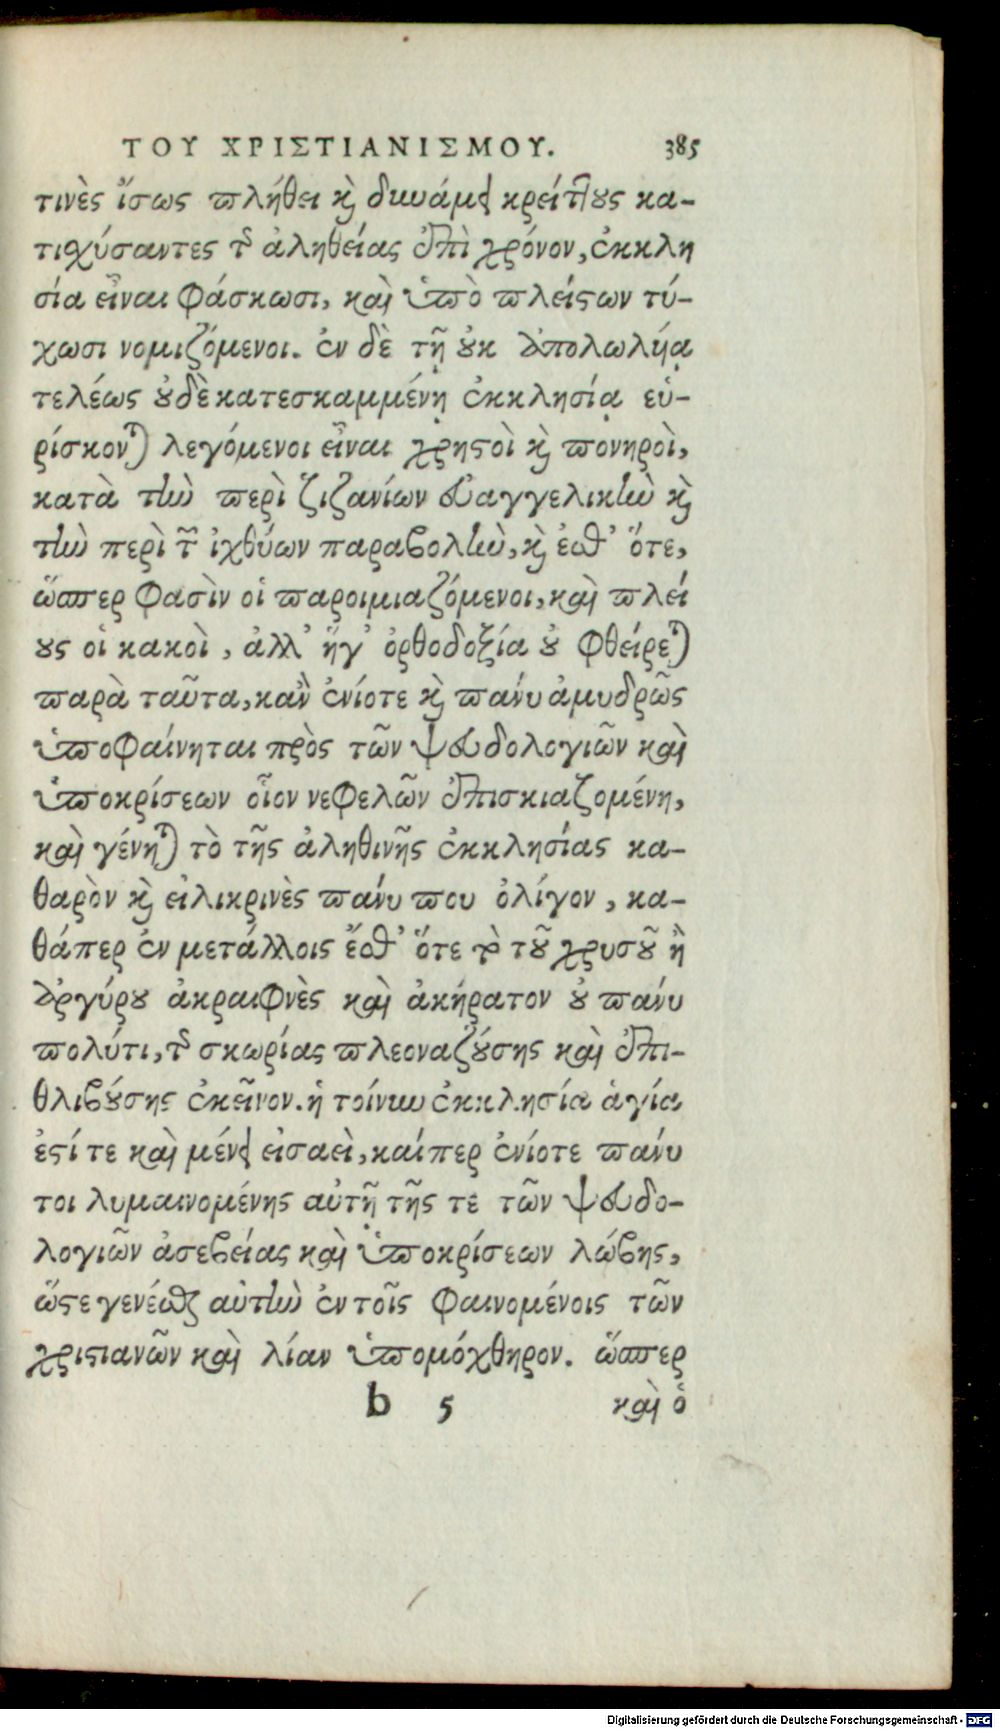 ΤΟΥ ΧΡΙΣΤΙΑΝΙΣΜΟΥ. 385
τινὲς ἴσως πλήθει καὶ δυνάμει κρείττους κα-
τιχύσαντες τῆς ἀληθείας ἐπὶ χρόνον, ἐκκλη
σία εἶναι φάσκωσι, καὶ ὑπὸ πλείστων τύ-
χωσι νομιζόμενοι. ἐν δὲ τῇ οὐκ ἀπολωλήᾳ
τελέως οὐδὲ κατεσκαμμένῃ ἐκκλησίᾳ εὑ-
ρίσκονται λεγόμενοι εἶναι χρηστοὶ καὶ πονηροὶ,
κατὰ τὴν περὶ ζιζανίων εὐαγγελικὴν καὶ
τὴν περὶ τῶν ἰχθύων παραβολὴν, καὶ ἐσθ’ ὅτε,
ὥσπερ φασὶν οἱ παροιμιαζόμενοι, καὶ πλεί
ους οἱ κακοὶ, ἀλλ’ ἥγ’ ὀρθοδοξία οὐ φθείρεται
παρὰ ταῦτα, κἂν ἐνίοτε καὶ πάνυ ἀμυδρῶς
ὑποφαίνηται πρὸς τῶν ψευδολογιῶν καὶ
ὑποκρίσεων οἷον νεφελῶν ἐπισκιαζομένη,
καὶ γένηται τὸ τῆς ἀληθινῆς ἐκκλησίας κα-
θαρὸν καὶ εἰλικρινὲς πάνυ που ὀλίγον, κα-
θάπερ ἐν μετάλλοις ἔσθ’ ὅτε τὸ τοῦ χρυσοῦ ἢ
ἀργύρου ἀκραιφνὲς καὶ ἀκήρατον οὐ πάνυ
πολύτι, τῆς σκωρίας πλεοναζούσης καὶ ἐπι-
θλιβούσης ἐκεῖνον. ἡ τοίνυν ἐκκλησία ἁγία
ἐστί τε καὶ μένει εἰσαεὶ, καίπερ ἐνίοτε πάνυ
τοι λυμαινομένης αὐτῇ τῆς τε τῶν ψευδο-
λογιῶν ἀσεβείας καὶ ὑποκρίσεων λώβης,
ὥστε γενέσθαι αὐτὴν ἐν τοῖς φαινομένοις τῶν
χριστιανῶν καὶ λίαν ὑπομόχθηρον. ὥσπερ
b 5 καὶ ὁ
Digitalisierung gefördert durch die Deutsche Forschungsgemeinschaft - DFG